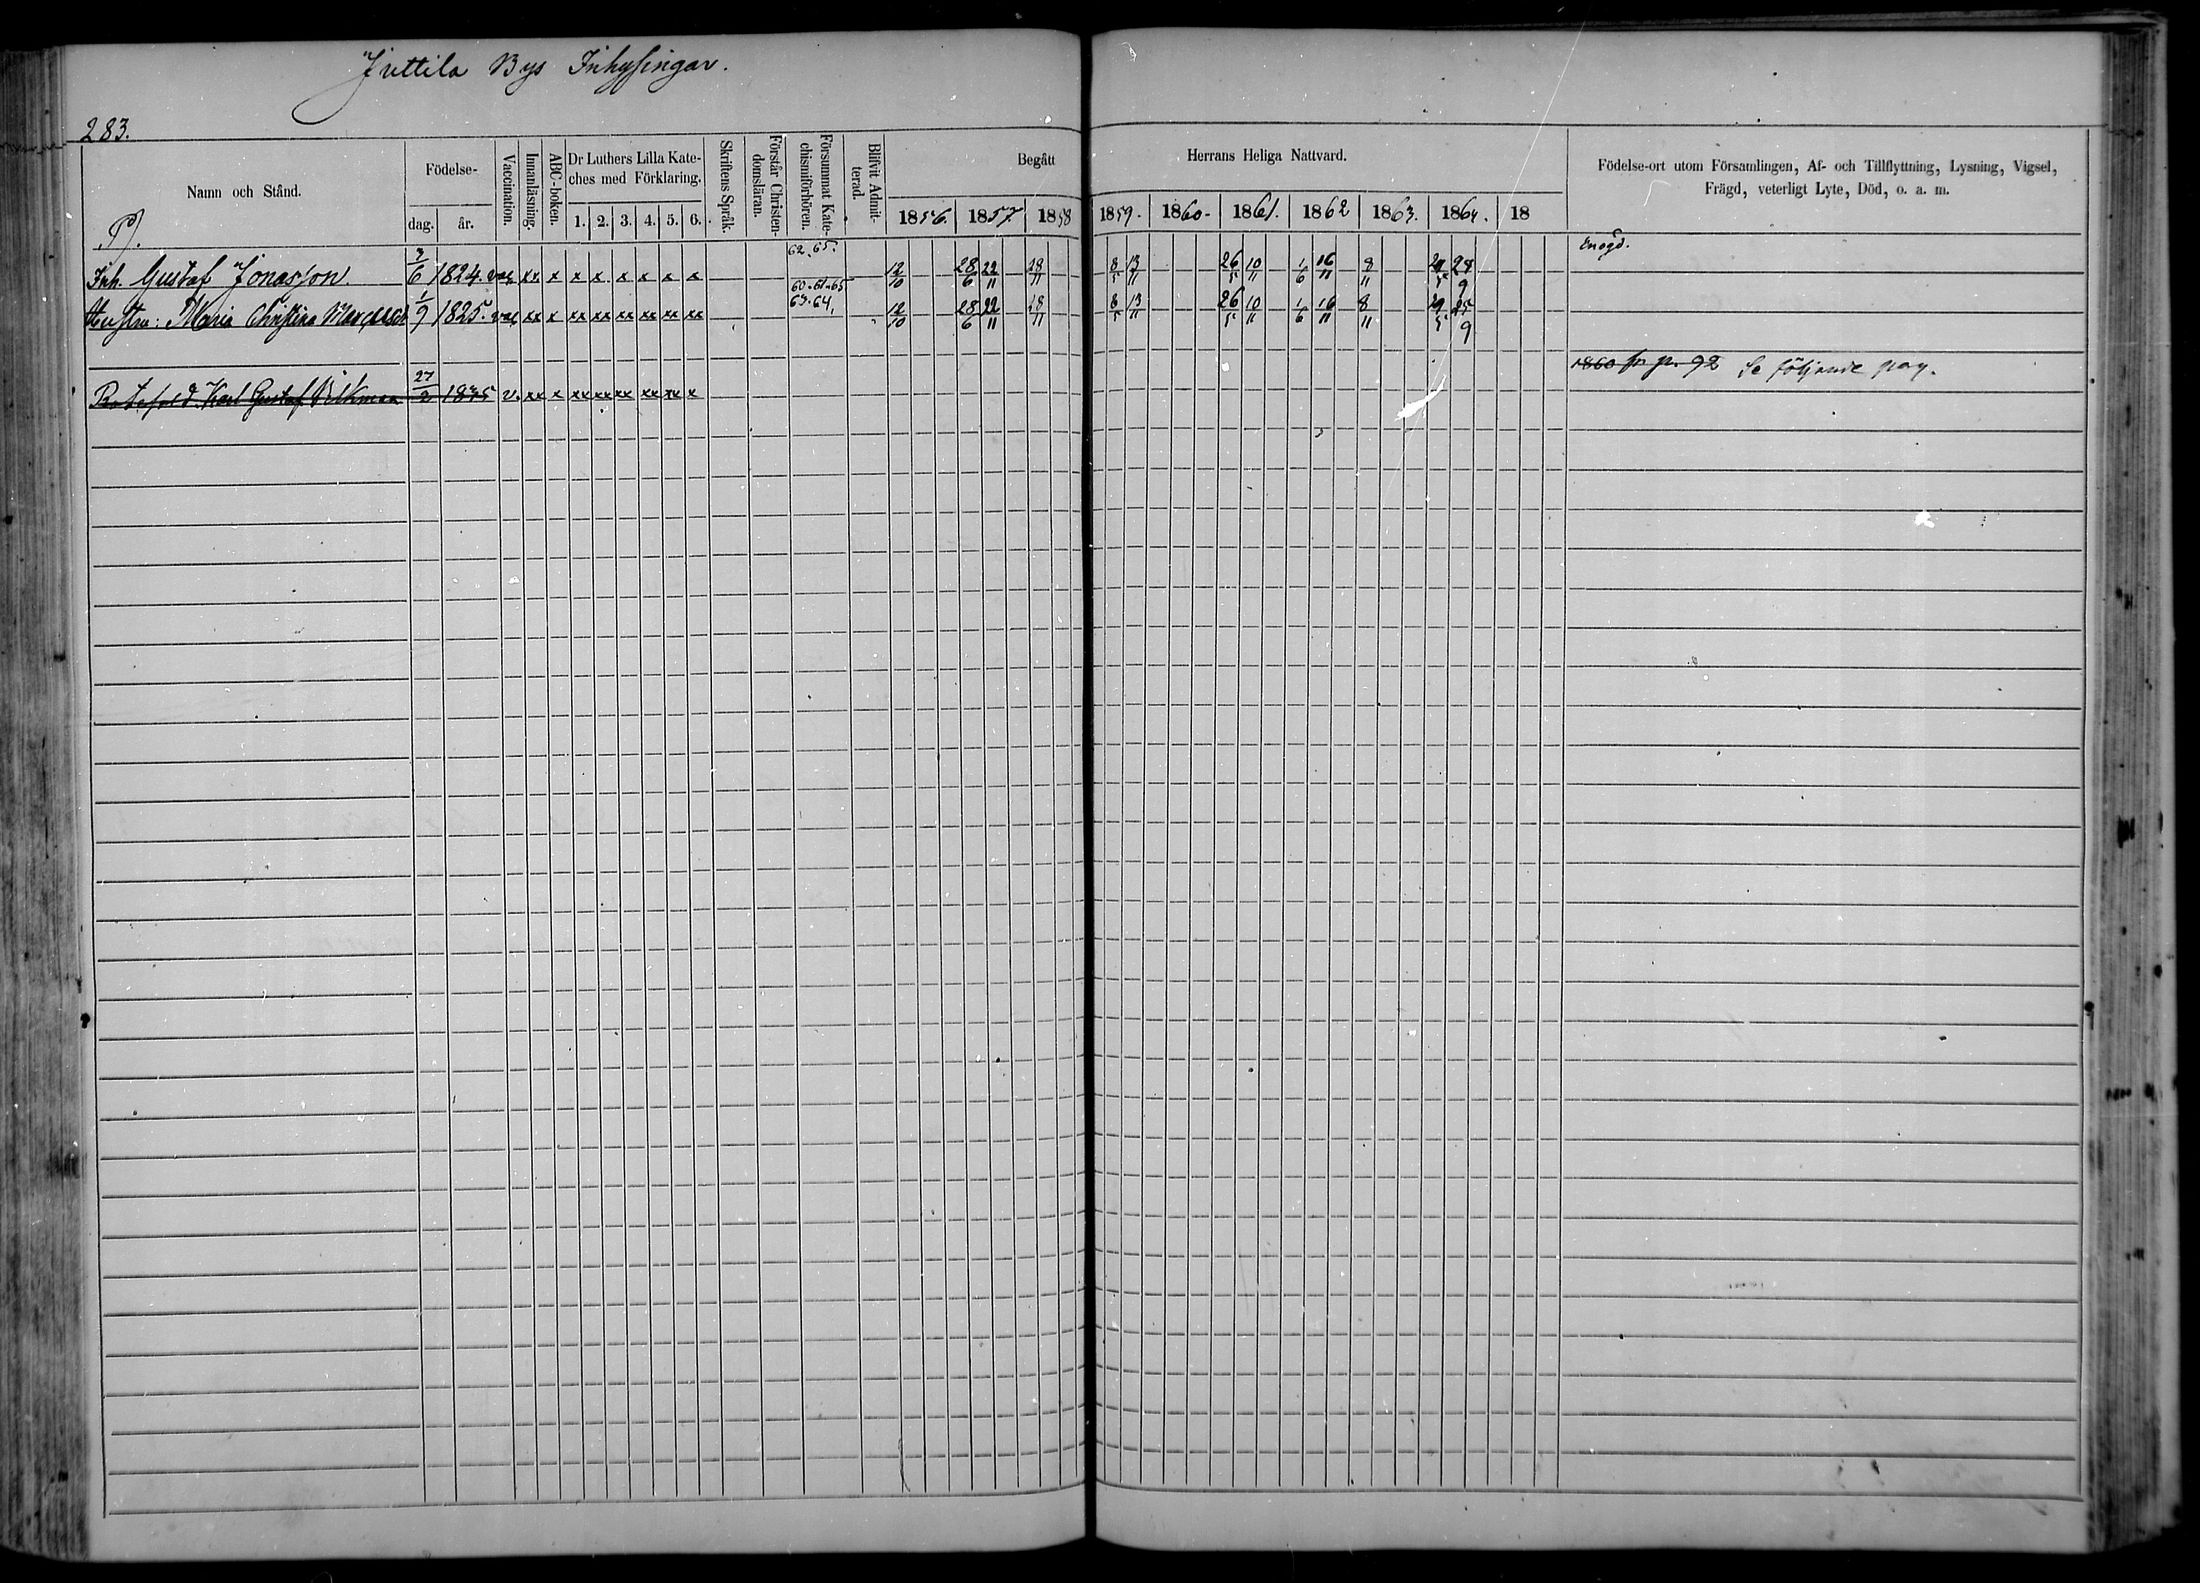 Juttila Bys Inhysingar.
283.
Namn och Stånd.
Födelse-
dag. år.
Vaccination.
Innanläsning.
ABC-boken.
Dr Luthers Lilla Kate-
ches med Förklaring.
1. 2. 3. 4. 5. 6.
Skriftens Språk.
Förstår Christen-
domsläran.
Försummat Kate-
chismiförhören.
Blifvit Admit-
terad.
Begått Herrans Heliga Nattvard.
1856. 1857. 1858 1859. 1860. 1861. 1862 1863. 1864. 18
Födelse-ort utom Församlingen, Af- och Tillflyttning, Lysning, Vigsel,
Frägd, veterligt Lyte, Död, o. a. m.
62. 65.
Inh. Gustaf Jonasson. 7/6 1824. vac xx x x x x x x x 12/10 28/6 22/11 28/11 8/5 13/11 26/5 10/11 1/6 16/11 8/11 29/5 28/9
60. 61. 65
63. 64,
Hustru: Maria Christina 1/9 1825. vac xx x xx xx xx xx xx xx 12/10 28/6 22/11 28/11 8/5 13/11 26/5 10/11 1/6 16/11 8/11 29/5 25/9
Karl Gustaf 27/2 1835 v. xx x xx xx xx xx xx x 1860 fr p. 92 Se följande pag.